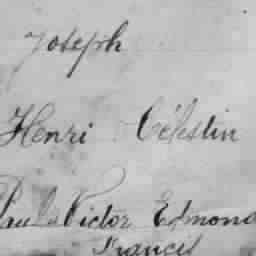 Joseph
Henri Célestin
Paul Victor Edmond
Francès